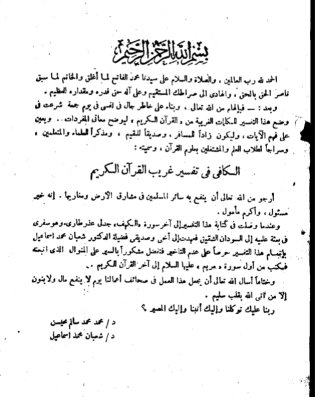 بسم الله الرحمن الرحيم
الحمد لله رب العالمين ، والصلاة والسلام على سيدنا محمد الفاتح لما أغلق والخاتم لما سبق
ناصر الحق بالحق ، والهادى إلى صراطك المستقيم وعلى آله حق قدره ومقداره العظيم .
وبعد : ـ فبإلهام من الله تعالى ، وبناء على خاطر جال فى نفسى فى يوم جمعة شرعت فى
وضع هذا التفسير للكلمات الغريبة من ، القرآن الكريم ، ليوضح معانى المفردات . ويعين
على فهم الآيات ، وليكون زاداً للمسافر ، وصديقاً للمقيم ، ومذكراً للعلماء والمتعلمين ،
وسراجاً لطلاب العلم والمشتغلين بعلوم القرآن ، وسميته :
الكافى فى تفسير غريب القرآن الكريم
أرجو من الله تعالى أن ينفع به سائر المسلمين فى مشارق الأرض ومغاربها . إنه خير
مسئول ، وأكرم مأمول .
وعندما وصلت فى كتابة هذا التفسير إلى آخر سورة ، الكهف ، جدل عذر طارئ ، وهو سفرى
فى بعثة علمية إلى السودان الشقيق فعهدت إلى أخى وصديقى فضيلة الدكتور شعبان محمد إسماعيل
بإتمام هذا التفسير حرصاً على عدم التأخير فتفضل مشكوراً بالسير على المنوال الذى اتبعته
فكتب من أول سورة ، مريم ، عليها السلام إلى آخر القرآن الكريم .
وختاماً أسأل الله تعالى أن يجعل هذا العمل فى صحائف أعمالنا يوم لا ينفع مال ولا بنون
إلا من أتى الله بقلب سليم .
ربنا عليك توكلنا وإليك أنبنا وإليك المصير ؟
د / محمد محمد سالم محيسن
د / شعبان محمد اسماعيل